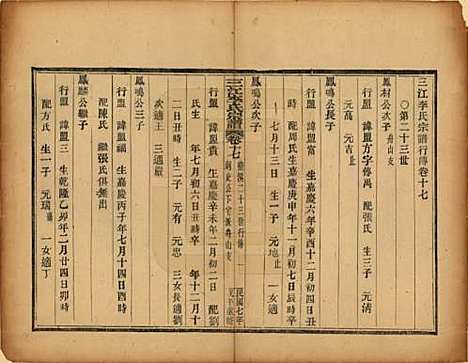 三江李氏宗譜行傳卷十七
○第二十三世
鳳村公次子 舟山支
行盟 諱盟方字傳禹 配張氏 生三子 元清
元高 元吉
鳳鳴公長子
行盟 諱盟富 生嘉慶六年辛酉十二月初八
日 配周氏生嘉慶庚申年十一月初九日 繼
七月十三日 生一子 元地 一女適
三江李氏宗譜 卷十七 第二十三世行傳 舟山支 民國七年
鳳鳴公次子
行盟 諱盟高 生嘉慶辛未年二月初二日 配劉
氏生 年七月初六日丑時卒 年十二月十
二日丑時 生一子 元 元忠 三女長適劉
次適王 三適嚴
鳳鳴公三子
行盟 諱盟福 生 年七月十四日丑時
配陳氏 繼張氏俱早亡
鳳麟公繼子
行盟 諱盟三 生乾隆乙卯年二月廿四日卯時
配方氏 生一子 元瑞 一女適丁